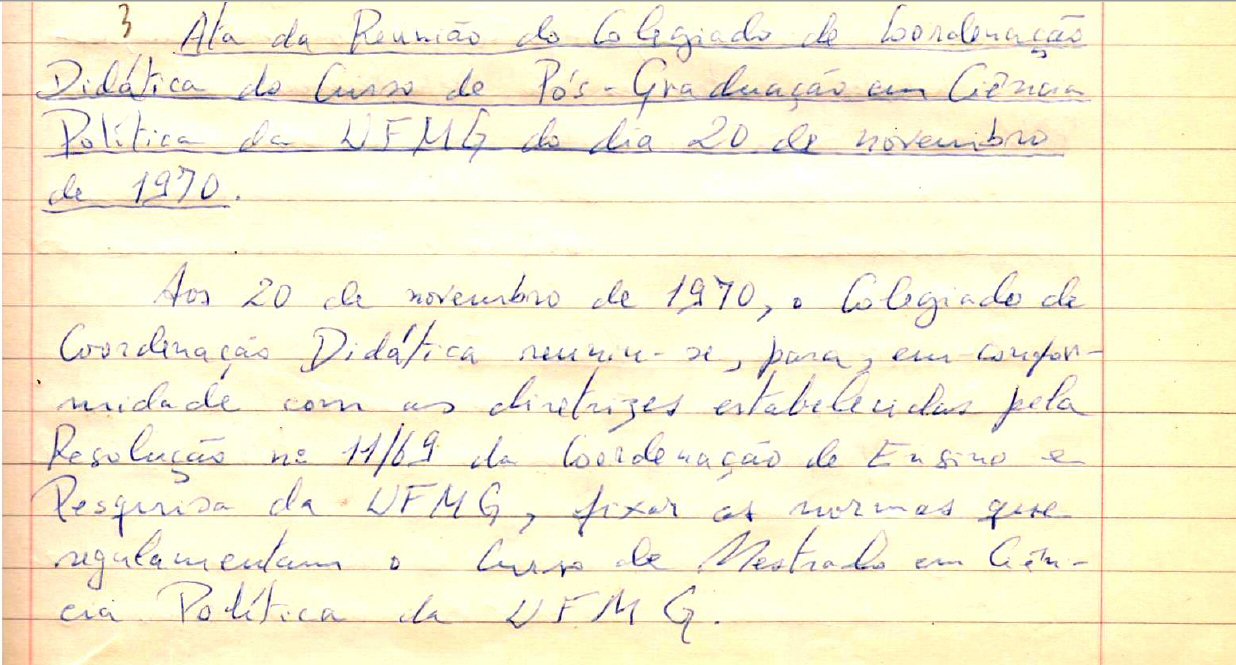 3
Ata da Reunião do Colegiado de Coordenação
Didática do Curso de Pós-Graduação em Ciência
Política da UFMG do dia 20 de novembro
de 1970.
Aos 20 de novembro de 1970, o Colegiado de
Coordenação Didática reuniu-se, para, em confor-
midade com as diretrizes estabelecidas pela
Resolução nº 11/69 da Coordenação de Ensino e
Pesquisa da UFMG, fixar as normas que
regulamentam o Curso de Mestrado em Ciên-
cia Política da UFMG.